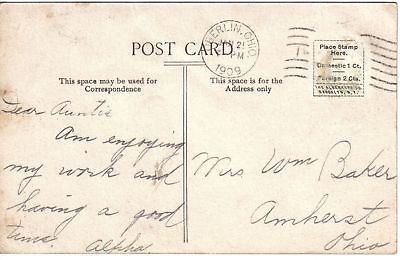 POST CARD.
OBERLIN, OHIO
JAN 21
PM
1909
Place Stamp
Here.
Domestic 1 Ct.
Foreign 2 Cts.
BROOKLYN, N.Y.
This space may be used for
Correspondence
This space is for the
Address only
Dear Auntie
Am enjoying
my work and
having a good
time.
Alpha
Mrs Wm Baker
Amherst
Ohio